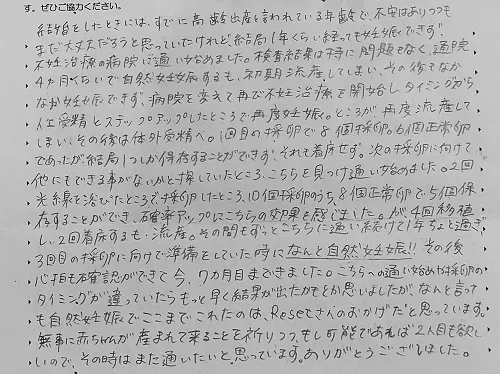 す。ぜひご協力ください。
結婚をしたときには、すでに高齢出産と言われている年齢で、不安はありつつも
まだ大丈夫だろうと思っていたけれど結局1年くらい経っても妊娠できず。
不妊治療の病院に通い始めました。検査結果は特に問題もなく、通院
4ヵ月くらいで自然妊娠するも、初期流産してしまい、その後もなか
なか妊娠できず、病院を変えて再び不妊治療を開始し、タイミングから
人工受精とステップアップしたところで再度妊娠。ところが再度流産して
しまい、その後は体外受精へ。1回目の採卵で8個採卵。6個正常卵
であったが結局1つしか保存することができず、それも着床せず。次の採卵に向けて
他にもできる事がないかと探していたところ、こちらを見つけ通い始めました。2回
光線を浴びたところで採卵したところ、10個採卵のうち、8個正常卵で5個保
存することができ、確率アップにこちらの効果を感じました。が、4回移植
し、2回着床するも、流産。その間もずっとこちらに通い続けて1年ちょと過ぎ、
3回目の採卵に向けて準備をしていた時になんと自然妊娠!! その後
心拍も確認ができて今、7ヵ月目まできました。こちらへの通い始めが採卵の
タイミングが違っていたらもっと早く結果が出たかもとか思いましたが、なんと言って
も自然妊娠でここまでこれたのは、Roseさんのおかげだと思っています。
無事に赤ちゃんが産まれて来ることを祈りつつ、もし可能であれば2人目も欲し
いので、その時はまた通いたいと思っています。ありがとうございました。